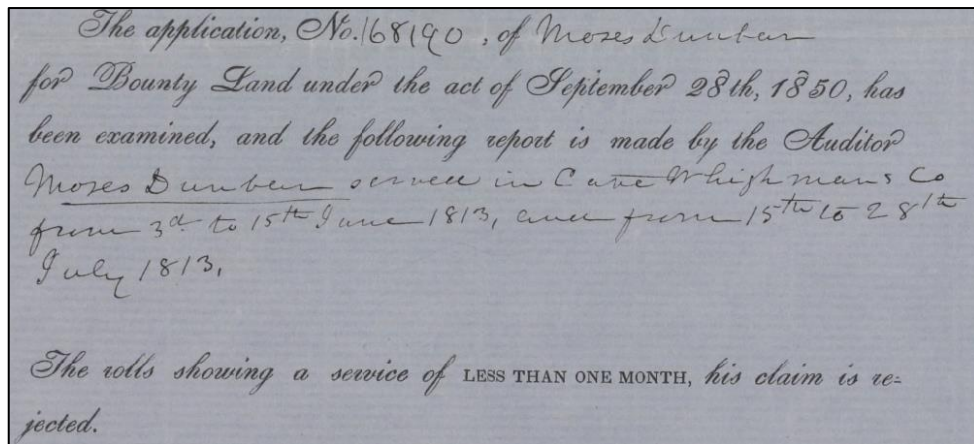 The application, No. 168190, of Moses Dunbar
for Bounty Land under the act of September 28th, 1850, has
been examined, and the following report is made by the Auditor
Moses Dunbar served in Whighmans Co
from 3d to 15th June 1813, and from 15th to 28th
July 1813.
The rolls showing a service of LESS THAN ONE MONTH, his claim is re=
jected.